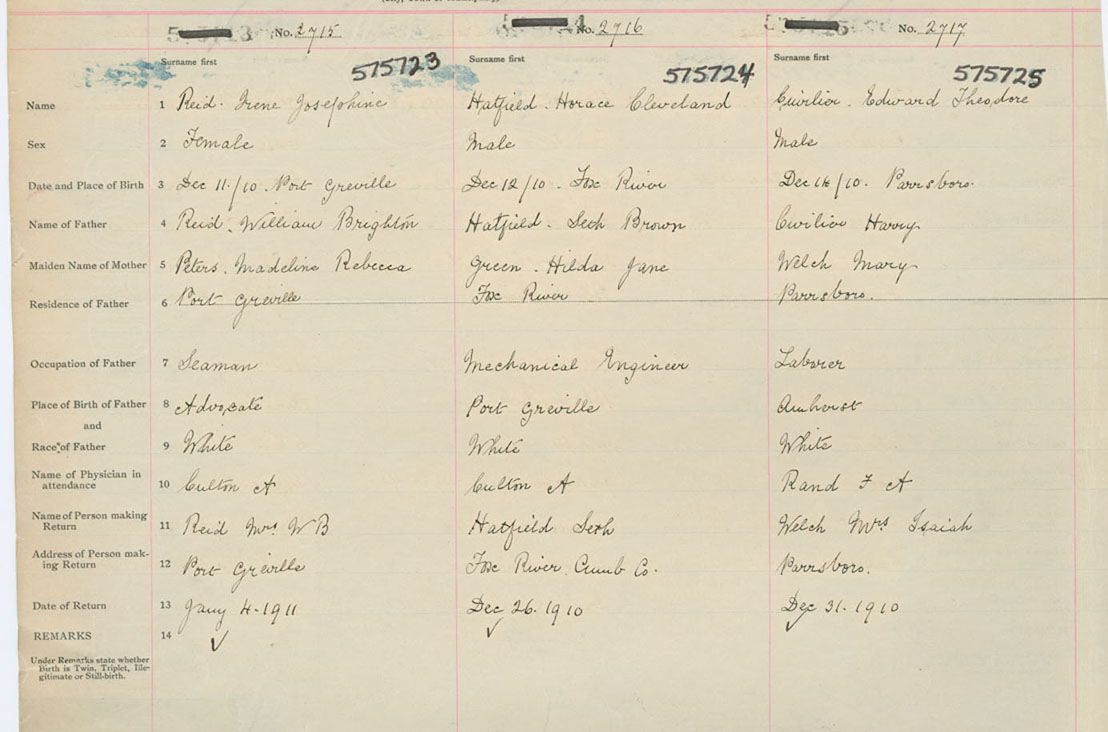 No. 2715 No. 2716 No. 2717
Surname first Surname first Surname first
575723 575724 575725
Name 1 Reid. Irene Josephine Hatfield. Horace Cleveland Edward Theodore
Sex 2 Female Male Male
Date and Place of Birth 3 Dec 11/10. Port Greville Dec 12/10. Fox River Dec /10. Parrsboro.
Name of Father 4 Reid. William Brighton Hatfield. Seth Brown Harry
Maiden Name of Mother 5 Peters. Madeline Rebecca Green. Hilda Jane Welch Mary
Residence of Father 6 Port Greville Fox River Parrsboro.
Occupation of Father 7 Seaman Mechanical Engineer Laborer
Place of Birth of Father 8 Advocate Port Greville Amherst
and
Race of Father 9 White White White
Name of Physician in
attendance 10 Culton A Culton A Rand F A
Name of Person making
Return 11 Reid Mrs W B Hatfield Seth Welch Mrs Isaiah
Address of Person mak-
ing Return 12 Port Greville Fox River Cumb Co. Parrsboro.
Date of Return 13 Jany 4-1911 Dec 26. 1910 Dec 31. 1910
REMARKS 14
Under Remarks state whether
Birth is Twin, Triplet, Ille-
gitimate or Still-birth.